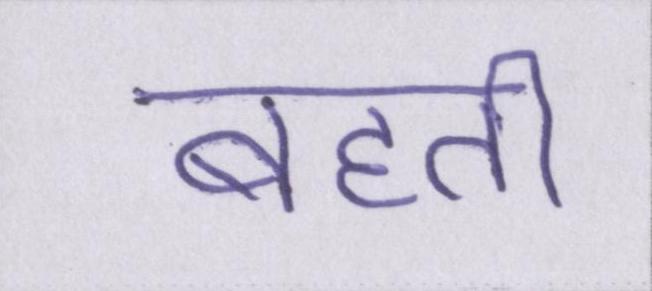 बहती